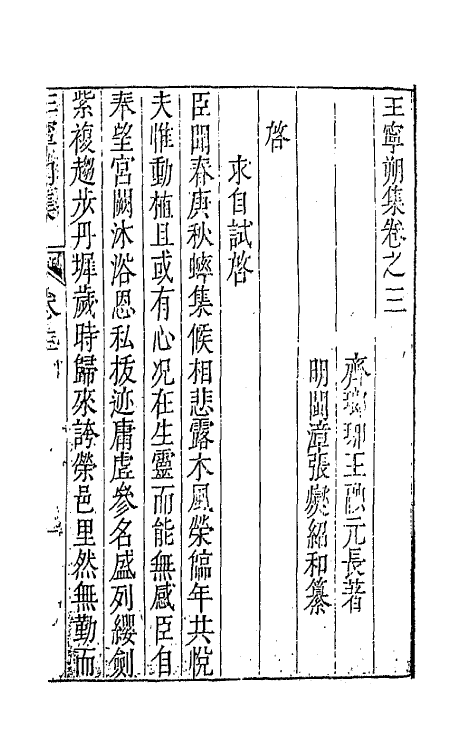 王寧朔集卷之三
齊瑯琊王融元長著
明閩漳張爕紹和纂
啓
求自試啓
臣聞春庚秋蟀集候相悲露木風榮臨年共悅
夫惟動植且或有心况在生靈而能無感臣自
奉望宮闕沐浴恩私拔迹庸虛參名盛列纓劍
紫複趨步丹墀歲時歸來誇榮邑里然無勤而
王寧朔集 卷之三 一